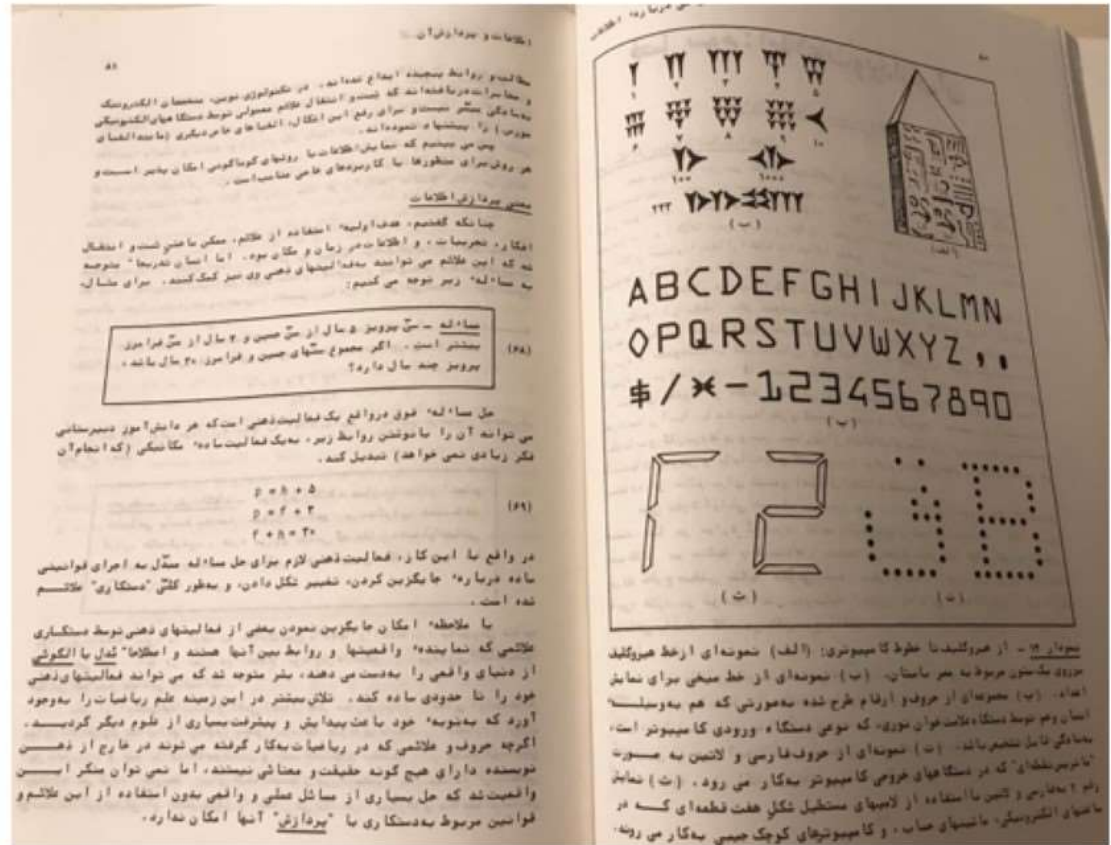 اطلاعات و پردازش آن
۸۱
مطالب و روابط پیچیده ابداع شده‌اند. در تکنولوژی نوین، متخصصان الکترونیک
و مخابرات دریافته‌اند که ثبت و انتقال علائم معمولی توسط دستگاههای الکترونیکی
به‌سادگی میسّر نیست و برای رفع این اشکال، الفباهای خاص دیگری (مانند الفبای
مورس) را پیشنهاد نموده‌اند.
پس می بینیم که نمایش اطلاعات با روشهای گوناگونی امکان پذیر است و
هر روش برای منظورها یا کاربردهای خاصی مناسب است.
معنی پردازش اطلاعات
چنانکه گفتیم، هدف اولیهٔ استفاده از علائم، ممکن ساختن ثبت و انتقال
افکار، تجربیات، و اطلاعات در زمان و مکان بود. اما انسان تدریجا" متوجه
شد که این علائم می توانند به‌فعالیتهای ذهنی وی نیز کمک کنند. برای مثال،
به مسألهٔ زیر توجه می کنیم:
مسأله - سنّ پرویز ۵ سال از سنّ حسین و ۲ سال از سنّ فرامرز
بیشتر است. اگر مجموع سنّهای حسین و فرامرز ۳۰ سال باشد،
پرویز چند سال دارد؟
(۶۸)
حل مسألهٔ فوق درواقع یک فعالیت ذهنی است که هر دانش‌آموز دبیرستانی
می تواند آن را با نوشتن روابط زیر، به‌یک فعالیت سادهٔ مکانیکی (که انجام آن
فکر زیادی نمی خواهد) تبدیل کند.
p = h + ۵
p = f + ۲
f + h = ۳۰
(۶۹)
در واقع با این کار، فعالیت ذهنی لازم برای حل مسأله مبدّل به اجرای قوانینی
ساده دربارهٔ جایگزین کردن، تغییر شکل دادن، و به‌طور کلّی "دستکاری" علائم
شده است.
با ملاحظهٔ امکان جایگزین نمودن بعضی از فعالیتهای ذهنی توسط دستکاری
علائمی که نمایندهٔ واقعیتها و روابط بین آنها هستند و اصطلاحا" مُدل یا الگوئی
از دنیای واقعی را به‌دست می دهند، بشر متوجه شد که می تواند فعالیتهای ذهنی
خود را تا حدودی ساده کند. تلاش بیشتر در این زمینه علم ریاضیات را به‌وجود
آورد که به‌نوبهٔ خود باعث پیدایش و پیشرفت بسیاری از علوم دیگر گردید.
اگرچه حروف و علائمی که در ریاضیات به‌کار گرفته می شوند در خارج از ذهن
نویسنده دارای هیچ گونه حقیقت و معنائی نیستند، اما نمی توان منکر این
واقعیت شد که حل بسیاری از مسائل عملی و واقعی بدون استفاده از این علائم و
قوانین مربوط به‌دستکاری یا "پردازش" آنها امکان ندارد.
۸۰
۱ ۲ ۳ ۴ ۵
۶ ۷ ۸ ۹ ۱۰
۶۰۰ ۶۰۰۰
(ب)
(الف)
ABCDEFGHIJKLMN
OPQRSTUVWXYZ,.
$/*-1234567890
(پ)
۲ 2
(ث)
ف B
(ت)
نمودار ۱۴ - از هیروگلیف تا خطوط کامپیوتری: (الف) نمونه‌ای از خط هیروگلیف
برروی یک ستون مربوط به مصر باستان. (ب) نمونه‌ای از خط میخی برای نمایش
اعداد. (پ) مجموعه‌ای از حروف و ارقام طرح شده به‌صورتی که هم به‌وسیلهٔ
انسان و هم توسط دستگاه علامت‌خوان نوری، که نوعی دستگاه ورودی کامپیوتر است،
به‌سادگی قابل تشخیص باشد. (ت) نمونه‌ای از حروف فارسی و لاتین به صورت
"ماتریس نقطه‌ای" که در دستگاههای خروجی کامپیوتر به‌کار می رود. (ث) نمایش
رقم ۲ به‌فارسی و لاتین با استفاده از لامپهای مستطیل شکل هفت قطعه‌ای که در
ساعتهای الکترونیکی، ماشینهای حساب، و کامپیوترهای کوچک جیبی به‌کار می روند.